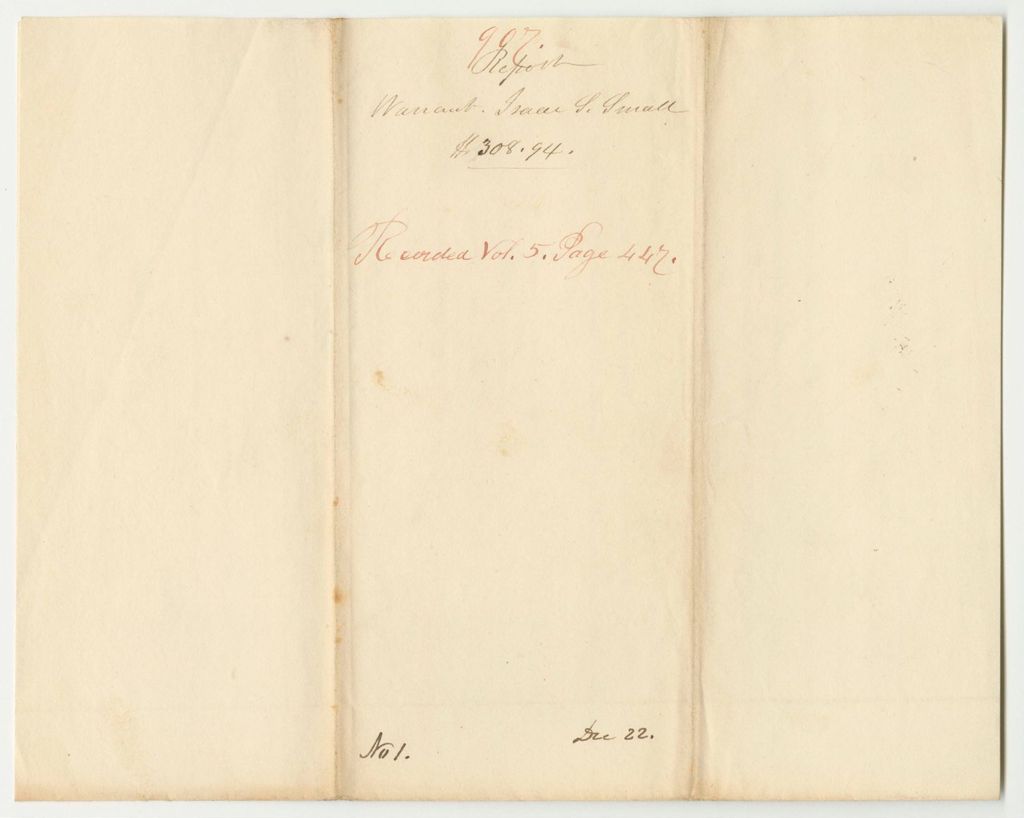 997.
Report
Warrant. Isaac S. Small
$308.94.
Recorded Vol. 5. Page 447.
No 1.
Dec 22.